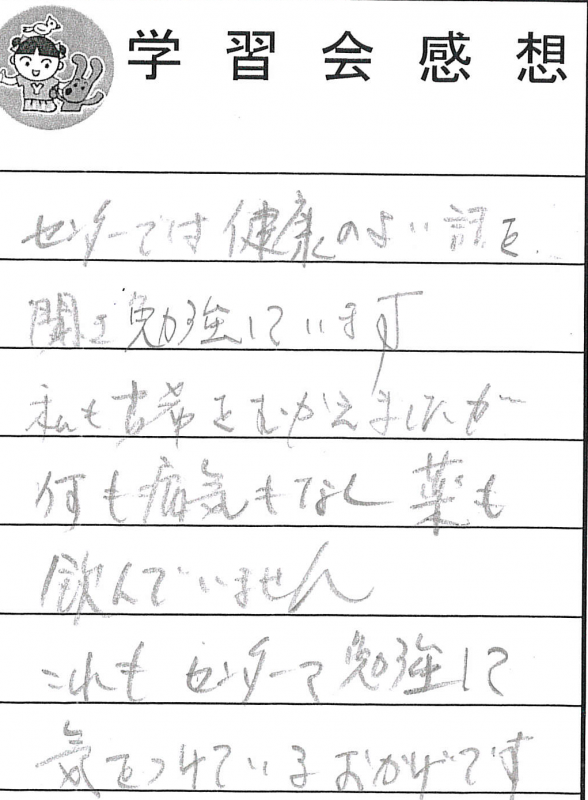 学習会感想
センターでは健康のよい話を
聞き勉強しています
私も古希をむかえましたが
何も病気もなし薬も
飲んでいません
これもセンターで勉強して
気をつけているおかげです